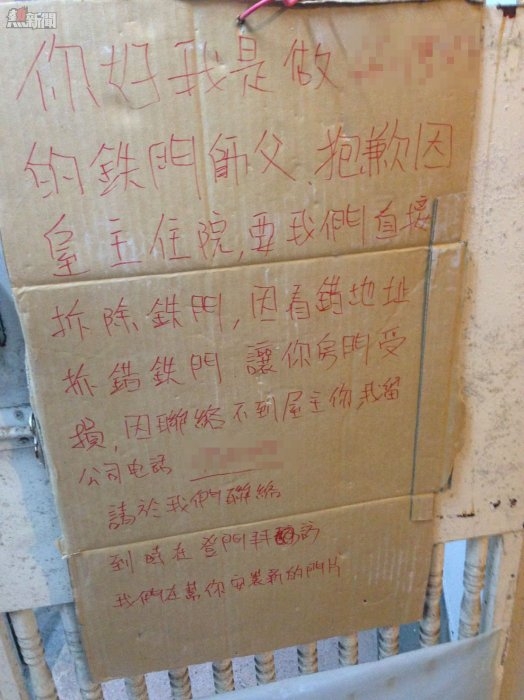 熱新聞
你好我是做
的鉄門師父 抱歉因
皇主住院,要我們直接
拆除鉄門,因看錯地址
拆錯鉄門 讓你房門受
損,因聯絡不到屋主你,我留
公司电話
請於我們聯絡
到時在登門拜訪
我們在幫你安裝新的門片